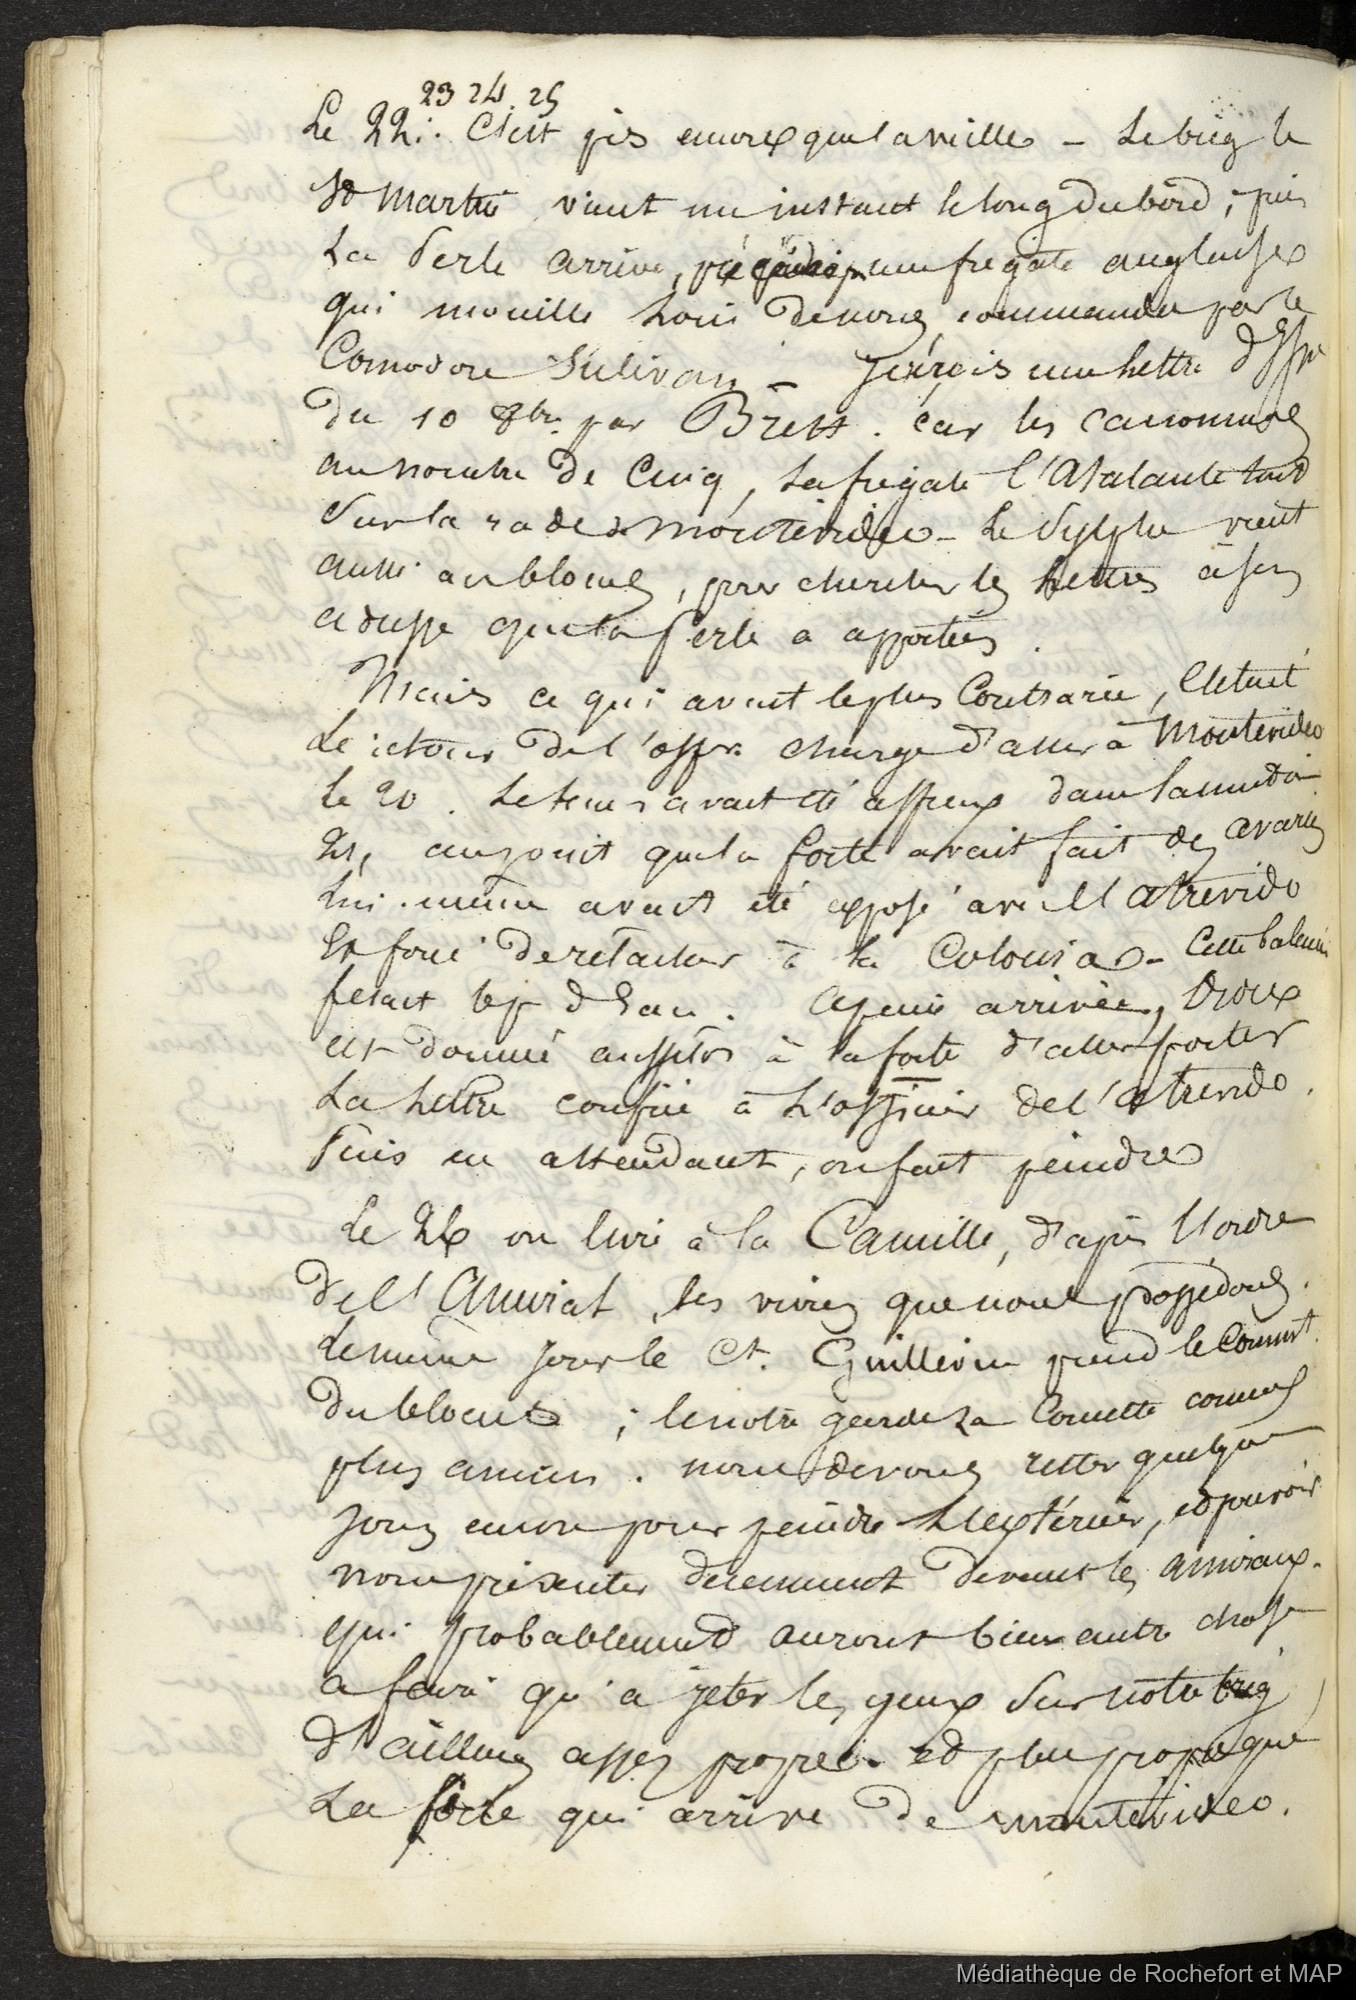 23 24. 25
Le 22. C'est pis encore que la veille - Le brig le
St Martin vient un instant le long du bord, puis
La Perle arrive, une frégate anglaise
qui mouille devous, commandée par le
Comodore Sulivan - Je reçois une Lettre
du 10 8bre par Brest. car les
au nombre de Cinq, La frégate l'Atalante sont
Sur la rade de Montevideo - Le Sylphe vient
aussi au blocus, pour chercher les Lettres à son
adresse que la Perle a apportées.
Mais ce qui avait le plus Contrarié, C'était
Le retour de l'offr. chargé d'aller à Montevideo
le 20. Le tems avait été affreux dans la nuit du
21, au point que la forte avait fait des avaries
Lui-même avait été exposé avec l'atrevido
Et forcé de relacher à la Colonia - Cette baleinière
fesait bep d'Eau. Apeine arrivée, Ordre
est donné aussitôt à la forte d'aller porter
La Lettre confiée à L'officier de l'atrevido.
Puis en attendant, on fait peindre
Le 26 on livre à la Camille, d'après l'ordre
de l'Amiral, les vivres que nous possédons.
Le même jour le Ct. Guillevin prend le Commt.
du blocus ; le notre garde sa Cornette comme
plus ancien. nous devons rester quelques
jours encore pour peindre L'extérieur, et pouvoir
nous présenter décemment devant les amiraux.
qui probablement auront bien autre chose
a faire qu'a jeter les yeux Sur notre brig
d'ailleurs assez propre. et plus propre que
La forte qui arrive de Montevideo.
Médiathèque de Rochefort et MAP